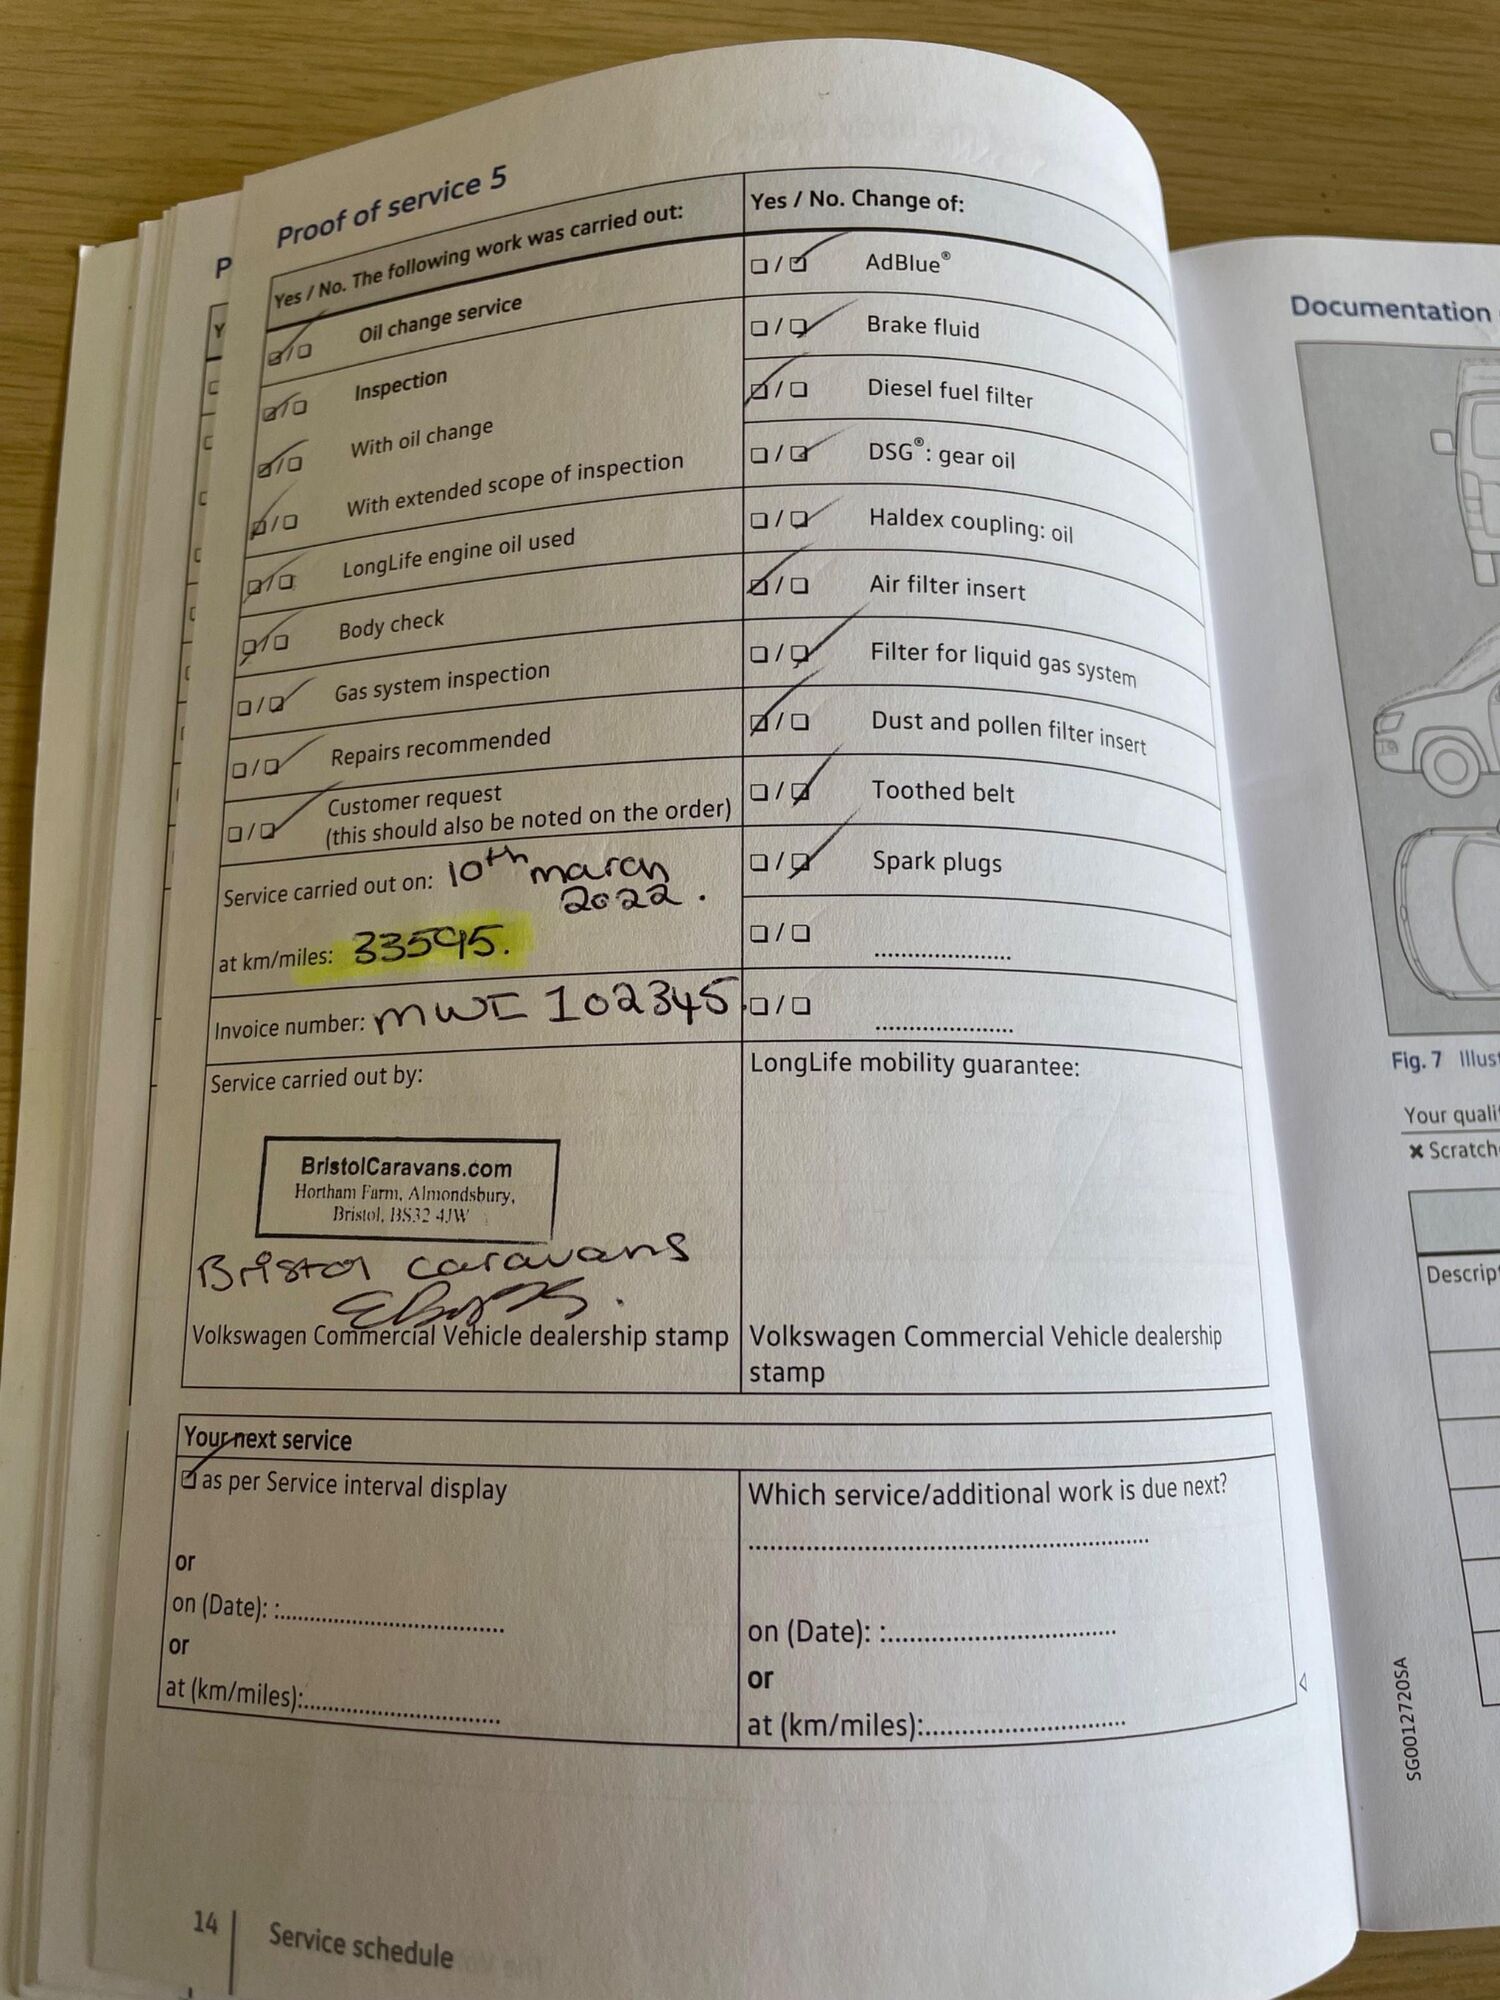 Proof of service 5
Yes / No. The following work was carried out:
Oil change service
Inspection
With oil change
With extended scope of inspection
LongLife engine oil used
Body check
Gas system inspection
Repairs recommended
Customer request
(this should also be noted on the order)
Service carried out on: 10th march
2022.
at km/miles: 33595.
Invoice number: MWI 102345.
Service carried out by:
BristolCaravans.com
Hortham Farm, Almondsbury,
Bristol, BS32 4JW
Bristol caravans
Volkswagen Commercial Vehicle dealership stamp
Yes / No. Change of:
AdBlue®
Brake fluid
Diesel fuel filter
DSG®: gear oil
Haldex coupling: oil
Air filter insert
Filter for liquid gas system
Dust and pollen filter insert
Toothed belt
Spark plugs
LongLife mobility guarantee:
Volkswagen Commercial Vehicle dealership
stamp
Your next service
as per Service interval display
or
on (Date): :
or
at (km/miles):
Which service/additional work is due next?
on (Date): :
or
at (km/miles):
14
Service schedule
P
Y
Documentation
Fig. 7 Illus
Your quali
Scratch
Descrip
SG0012720SA